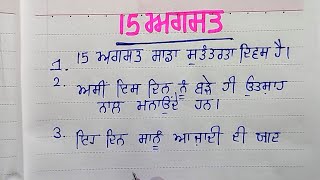 15 ਅਗਸਤ
1. 15 ਅਗਸਤ ਸਾਡਾ ਸੁਤੰਤਰਤਾ ਦਿਵਸ ਹੈ।
2. ਅਸੀਂ ਇਸ ਦਿਨ ਨੂੰ ਬੜੇ ਹੀ ਉਤਸਾਹ
ਨਾਲ ਮਨਾਉਂਦੇ ਹਨ।
3. ਇਹ ਦਿਨ ਸਾਨੂੰ ਆਜ਼ਾਦੀ ਦੀ ਯਾਦ